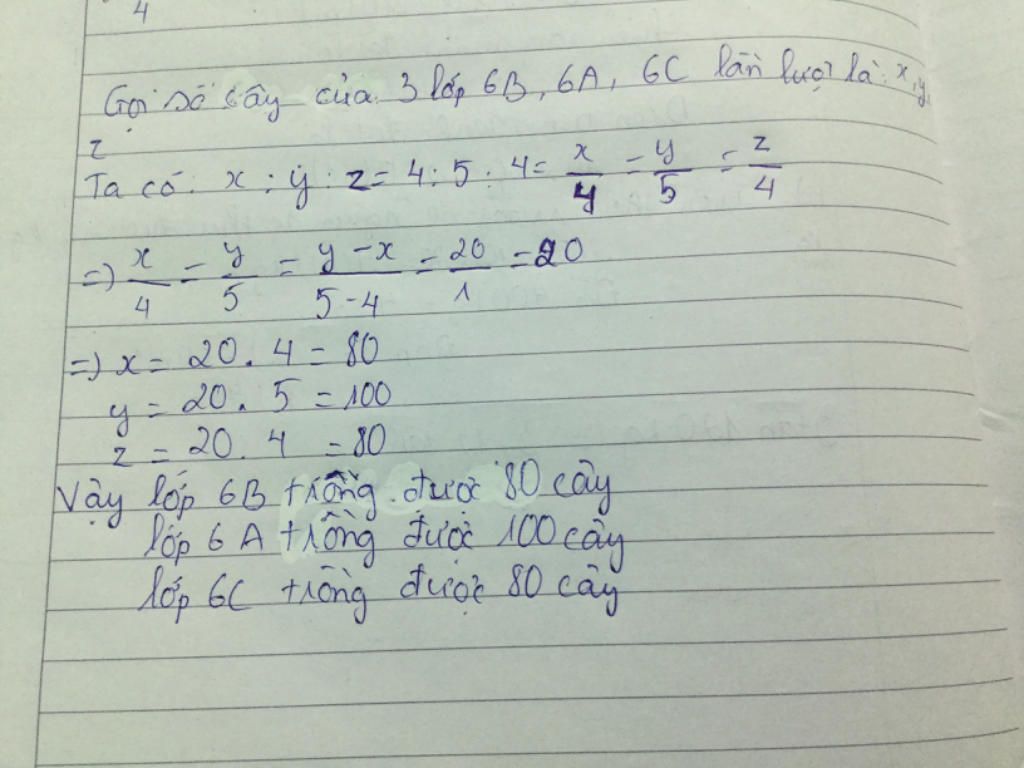 4
Gọi số cây của 3 lớp 6B, 6A, 6C lần lượt là: x, y,
z
Ta có: x : y : z = 4 : 5 : 4 = x/4 = y/5 = z/4
=> x/4 = y/5 = (y - x)/(5 - 4) = 20/1 = 20
=> x = 20 . 4 = 80
y = 20 . 5 = 100
z = 20 . 4 = 80
Vậy lớp 6B trồng được 80 cây
lớp 6A trồng được 100 cây
lớp 6C trồng được 80 cây